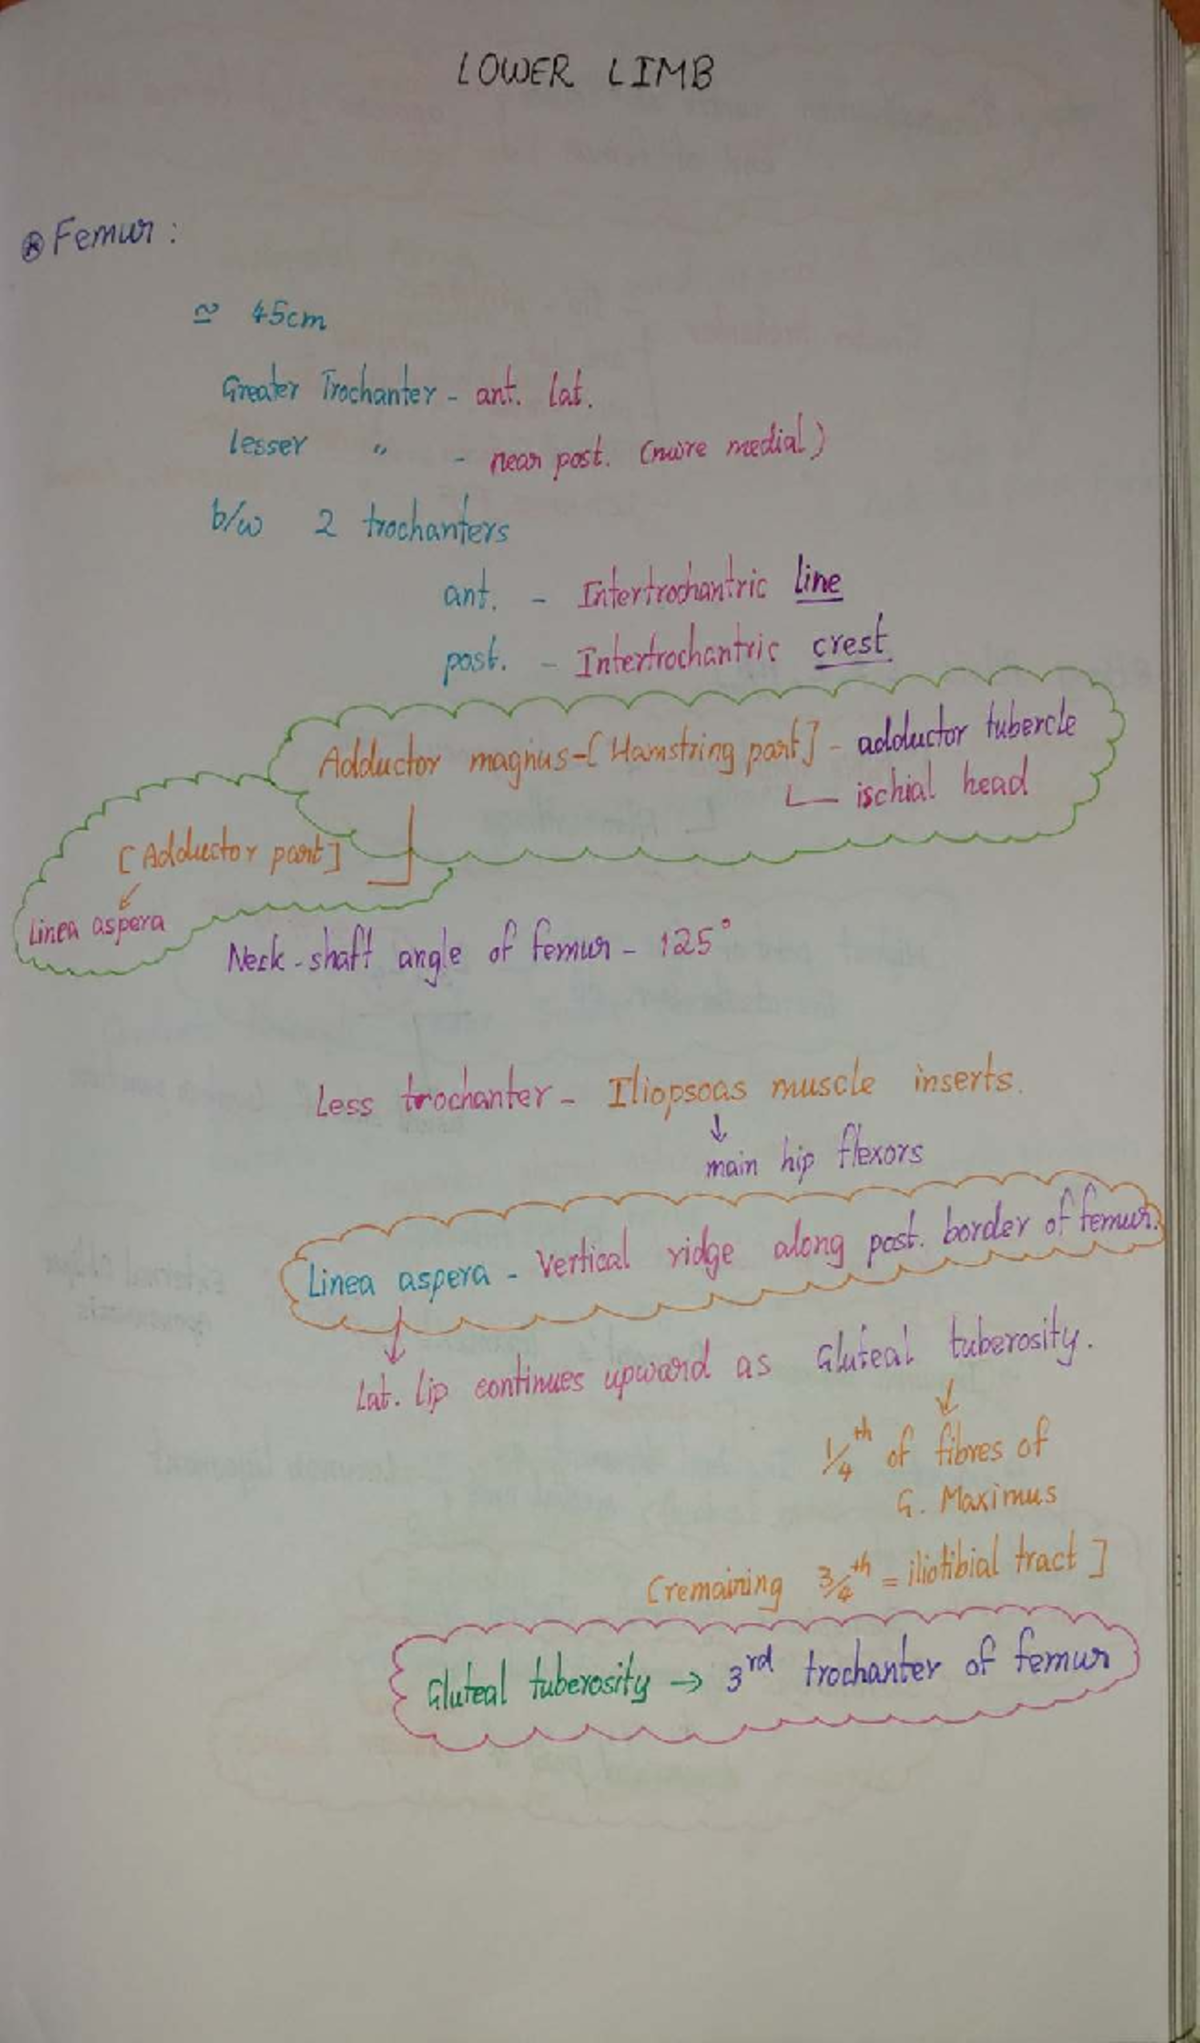 LOWER LIMB
Femur :
≃ 45cm
Greater Trochanter - ant. lat.
lesser " - near post. (more medial)
b/w 2 trochanters
ant. - Intertrochantric line
post. - Intertrochantric crest
Adductor magnus - [Hamstring part] - adductor tubercle
ischial head
[Adductor part]
Linea aspera
Neck - shaft angle of femur - 125°
Less trochanter - Iliopsoas muscle inserts.
↓
main hip flexors
Linea aspera - Vertical ridge along post. border of femur.
Lat. lip continues upward as Gluteal tuberosity.
1/4th of fibres of
G. Maximus
[remaining 3/4th = iliotibial tract]
Gluteal tuberosity → 3rd trochanter of femur